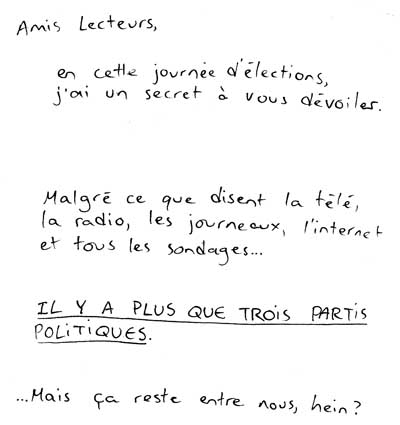 Amis Lecteurs,
en cette journée d'élections,
j'ai un secret à vous dévoiler.
Malgré ce que disent la télé,
la radio, les journeaux, l'internet
et tous les sondages...
IL Y A PLUS QUE TROIS PARTIS
POLITIQUES.
...Mais ça reste entre nous, hein?